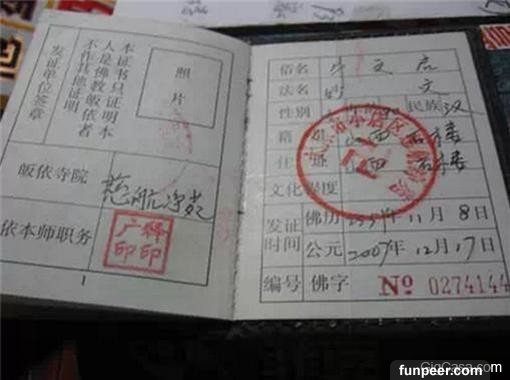 本证书只证明本
人是佛教皈依者
不作其他证明
发证单位签章
照片
皈依寺院 慈航净苑
依本师职务
释印
广印
1
俗名 文
法名 妙文
性别 民族 汉
籍 山西 石楼
住址 山西 石楼
文化程度
发证时间
佛历 2551年11月8日
公元 2007年12月17日
编号 佛字 No 0274144
funpeer.com